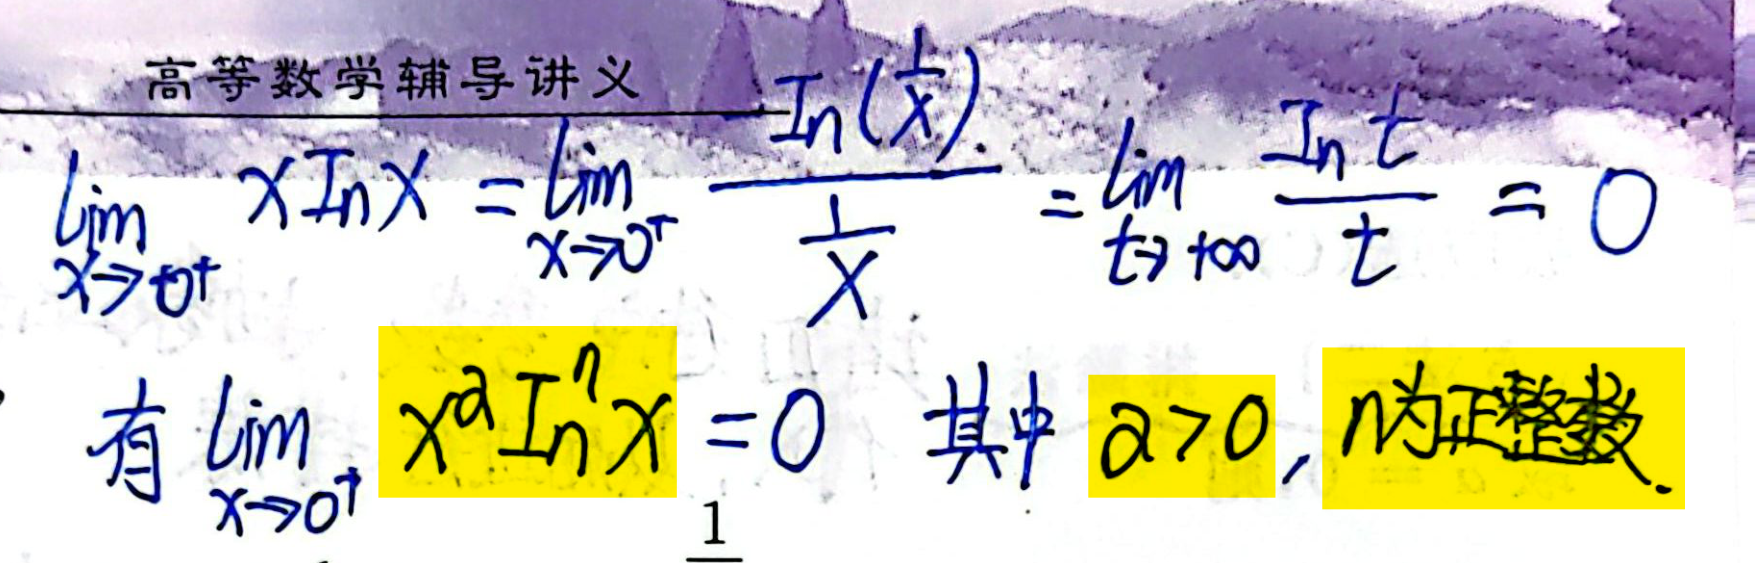 高等数学辅导讲义
lim x→0⁺ x In x = lim x→0⁺ -In(1/x) / (1/x) = lim t→+∞ In t / t = 0
有 lim x→0⁺ x^a Inⁿ x = 0 其中 a>0, n为正整数.
1